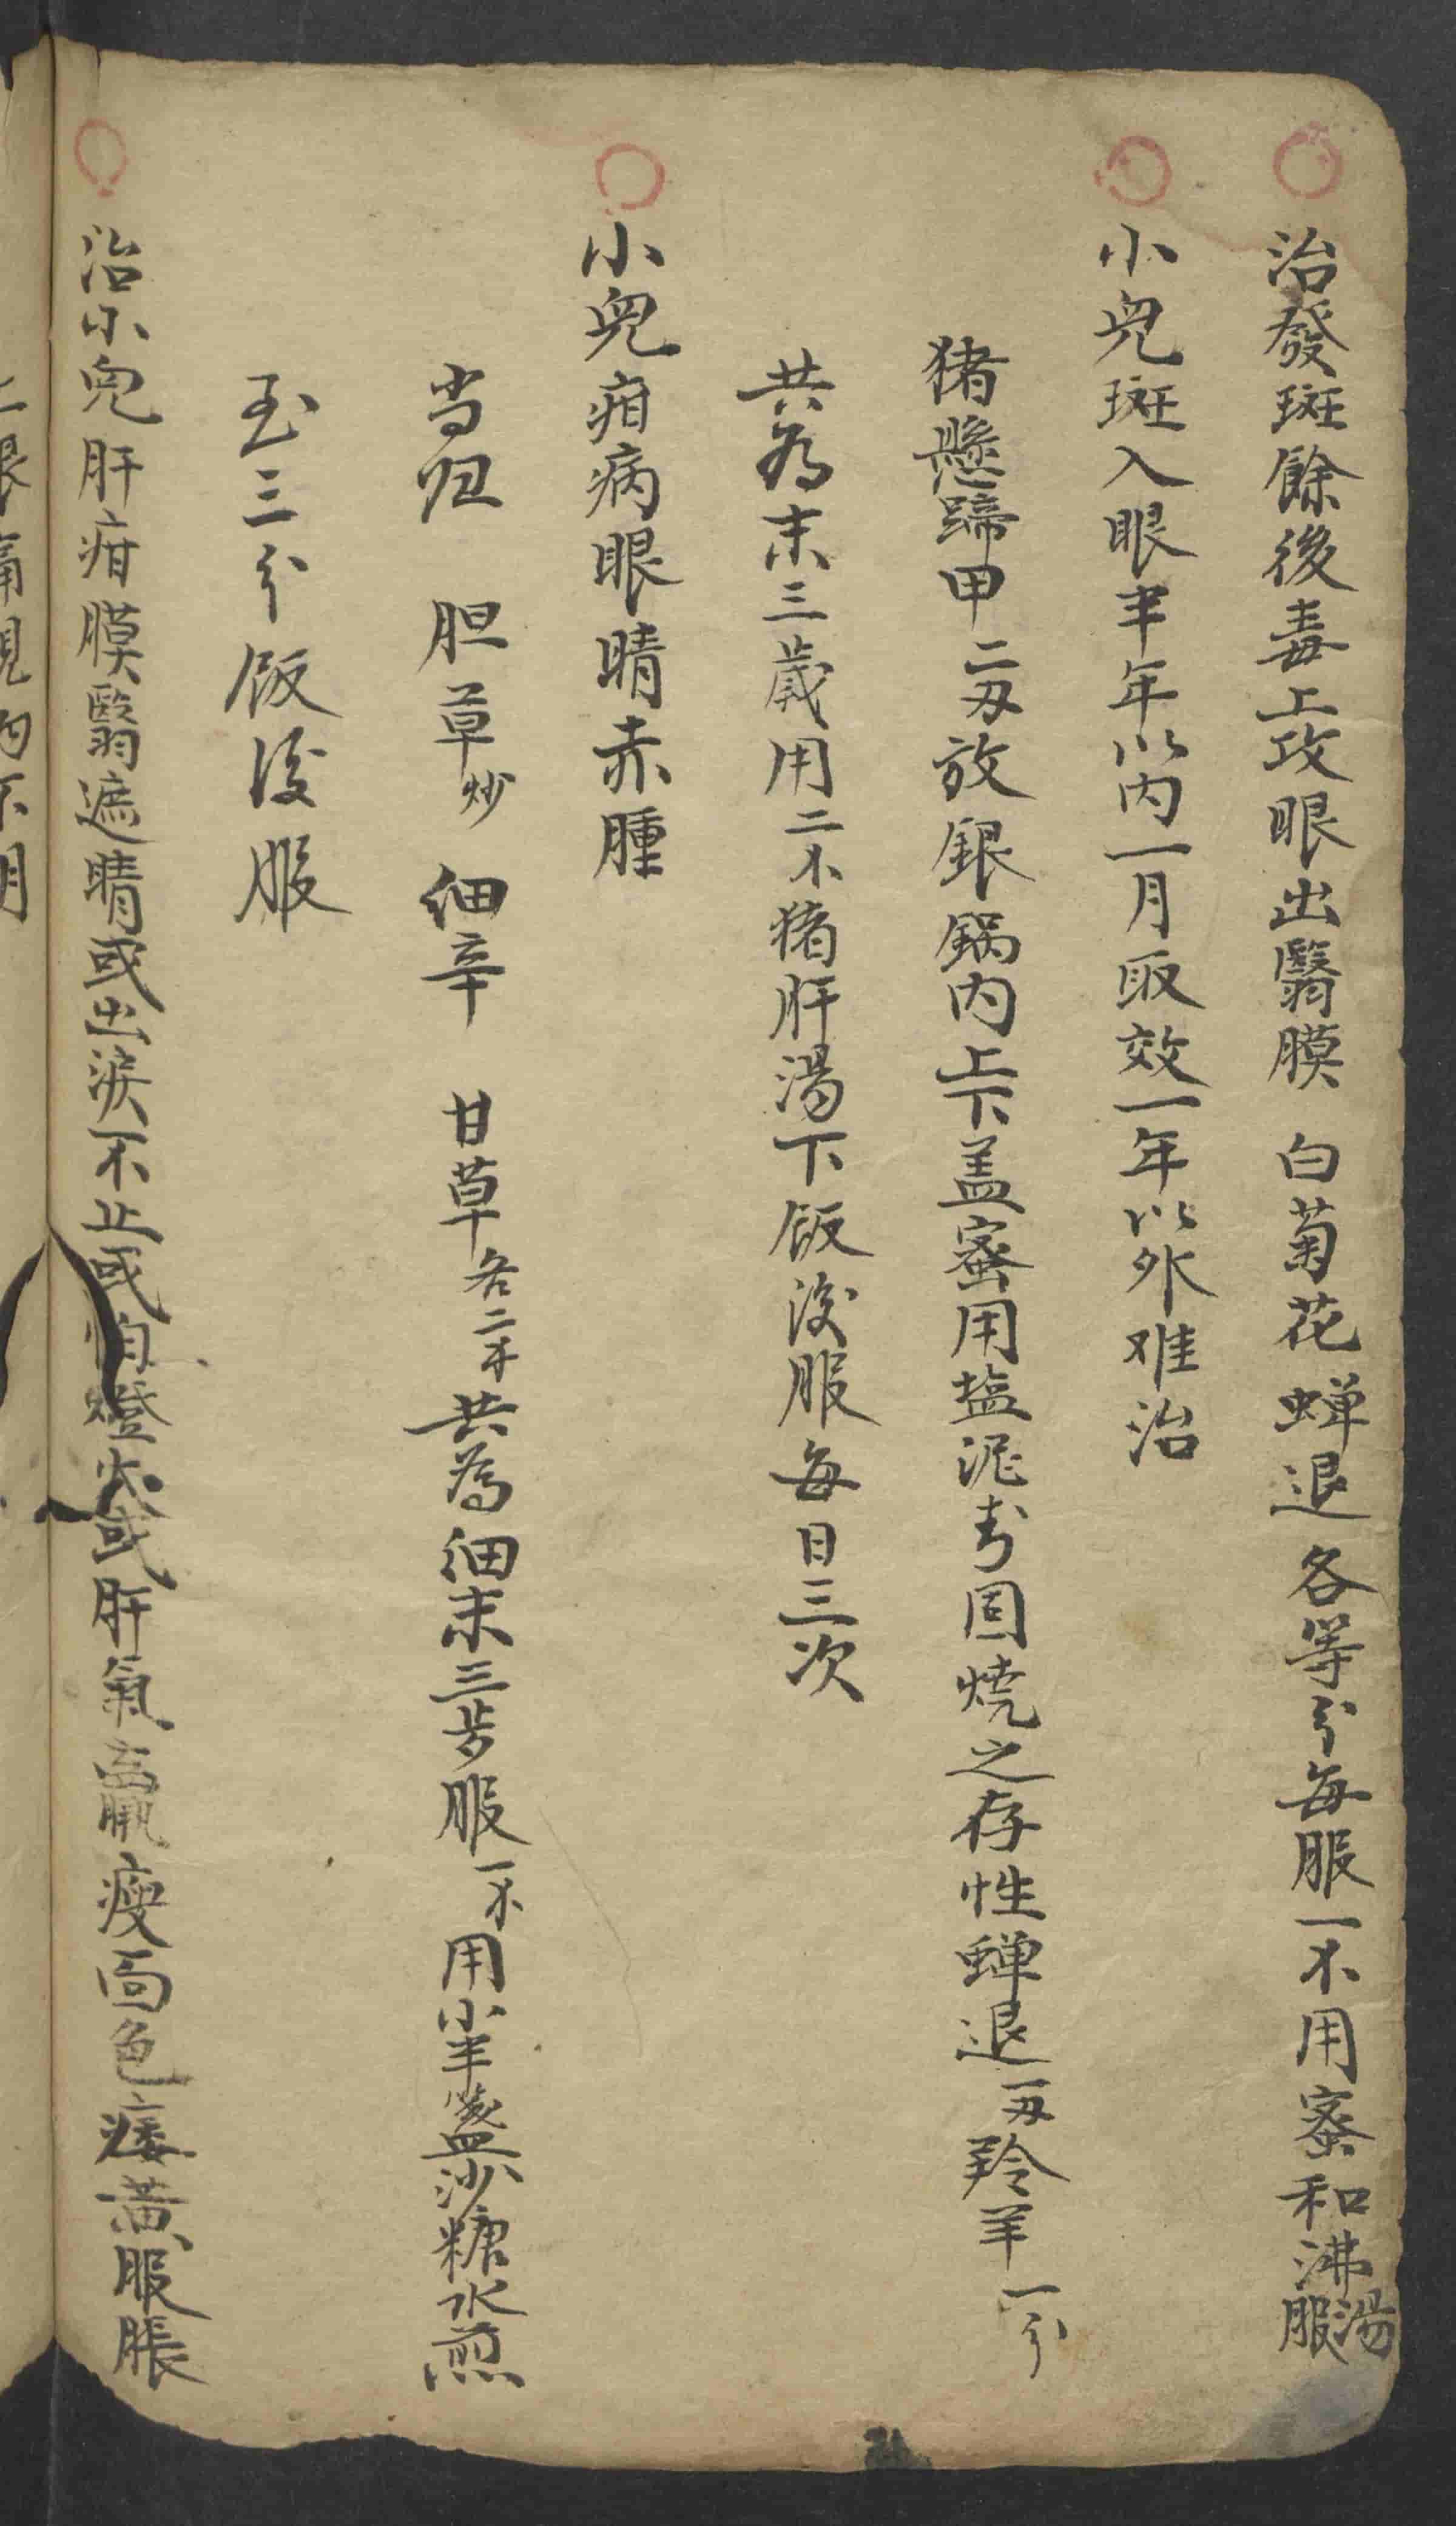 治發斑餘後毒上攻眼出翳膜 白菊花 蝉退 各等分每服一不用蜜和沸湯服
小兒斑入眼半年以内一月取效一年以外难治
猪懸蹄甲二刄放銀鍋内上下盖蜜用盐泥封固焼之存性蝉退一刄羚羊一分
共为末三歲用二不猪肝湯下饭後服每日三次
小兒疳病眼睛赤腫
当归 胆草炒 细辛 甘草各二不共為细末三岁服一不用小半盞沙糖水煎
至三分饭後服
治小兒肝疳膜翳遮睛或出淚不止或怕燈火或肝氣羸瘦面色痿黃服脹